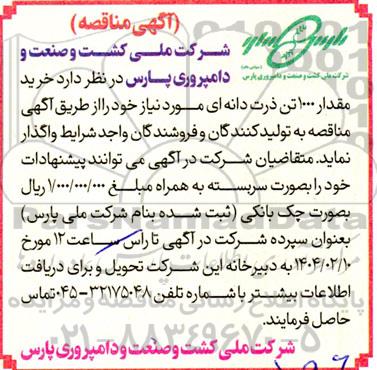 (آگهی مناقصه)
شرکت ملی کشت و صنعت و دامپروری پارس (سهامی عام)
شرکت ملی کشت و صنعت و
دامپروری پارس در نظر دارد خرید
مقدار ۱۰۰۰ تن ذرت دانه ای مورد نیاز خود را از طریق آگهی
مناقصه به تولیدکنندگان و فروشندگان واجد شرایط واگذار
نماید. متقاضیان شرکت در آگهی می توانند پیشنهادات
خود را بصورت سربسته به همراه مبلغ ۱/۰۰۰/۰۰۰/۰۰۰ ریال
بصورت چک بانکی (ثبت شده بنام شرکت ملی پارس)
بعنوان سپرده شرکت در آگهی تا راس ساعت ۱۲ مورخ
۱۴۰۴/۰۲/۱۰ به دبیرخانه این شرکت تحویل و برای دریافت
اطلاعات بیشتر با شماره تلفن ۳۲۱۷۵۰۴۸-۰۴۵ تماس
حاصل فرمایند.
شرکت ملی کشت و صنعت و دامپروری پارس
پایگاه اطلاع رسانی مناقصه و مزایده
۰۲۱-۸۸۳۴۹۶۷۰-۵